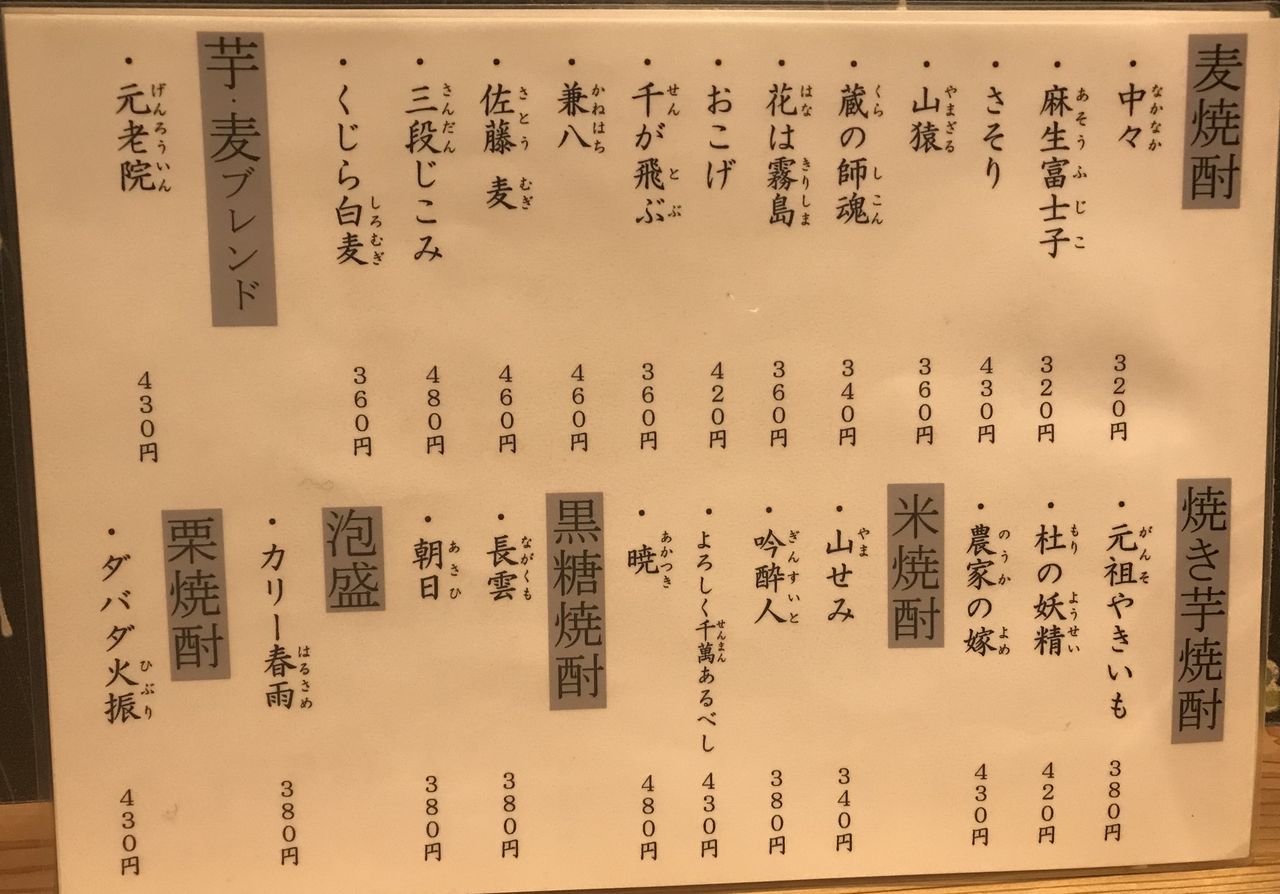 麦焼酎
・中々 なかなか 320円
・麻生富士子 あそうふじこ 320円
・さそり 430円
・山猿 やまざる 360円
・蔵の師魂 くら しこん 340円
・花は霧島 はな きりしま 360円
・おこげ 420円
・千が飛ぶ せん とぶ 360円
・兼八 かねはち 460円
・佐藤 麦 さとう むぎ 460円
・三段じこみ さんだん 480円
・くじら白麦 しろむぎ 360円
芋・麦ブレンド
・元老院 げんろういん 430円
焼き芋焼酎
・元祖やきいも がんそ 380円
・杜の妖精 もり ようせい 420円
・農家の嫁 のうか よめ 430円
米焼酎
・山せみ やま 340円
・吟酔人 ぎんすいと 380円
・よろしく千萬あるべし せんまん 430円
・暁 あかつき 480円
黒糖焼酎
・長雲 ながくも 380円
・朝日 あさひ 380円
泡盛
・カリー春雨 はるさめ 380円
栗焼酎
・ダバダ火振 ひぶり 430円